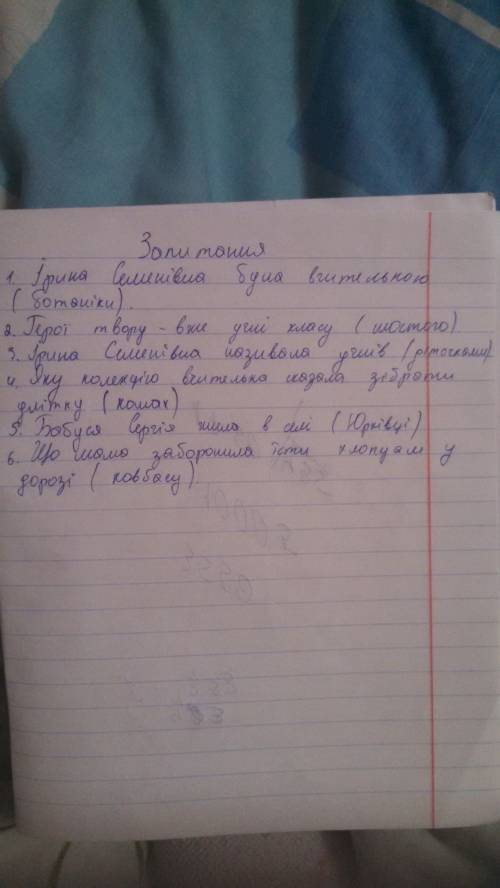 Запитання
1. Ірина Семенівна була вчителькою
( ботаніки).
2. Герої твору - вже учні класу ( шостого)
3. Ірина Семенівна називала учнів (діточками)
4. Яку колекцію вчителька казала зібрати
улітку ( комах)
5. Бабуся Сергія жила в селі ( Юрківці)
6. Що мама заборонила їсти хлопцам у
дорозі ( ковбасу).